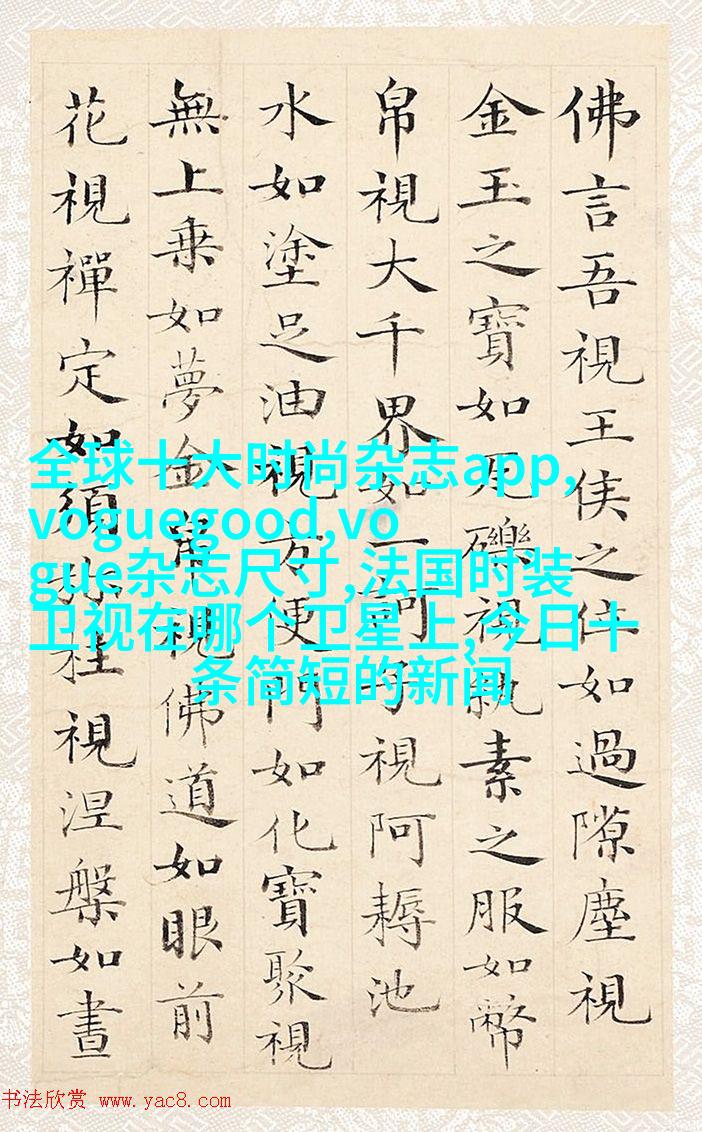 佛言吾視王侯之位如過隙塵視
金玉之寶如瓦礫視紈素之服如幣
帛視大千界如一訶子視阿耨池
水如塗足油視方便門如化寶聚視
無上乗如夢金帛視佛道如眼前
花視禪定如須弥柱視涅槃如晝
全球十大时尚杂志app,
voguegood,vo
gue杂志尺寸,法国时装
卫视在哪个卫星上,今日十
条简短的新闻
书法欣赏 www.yac8.com